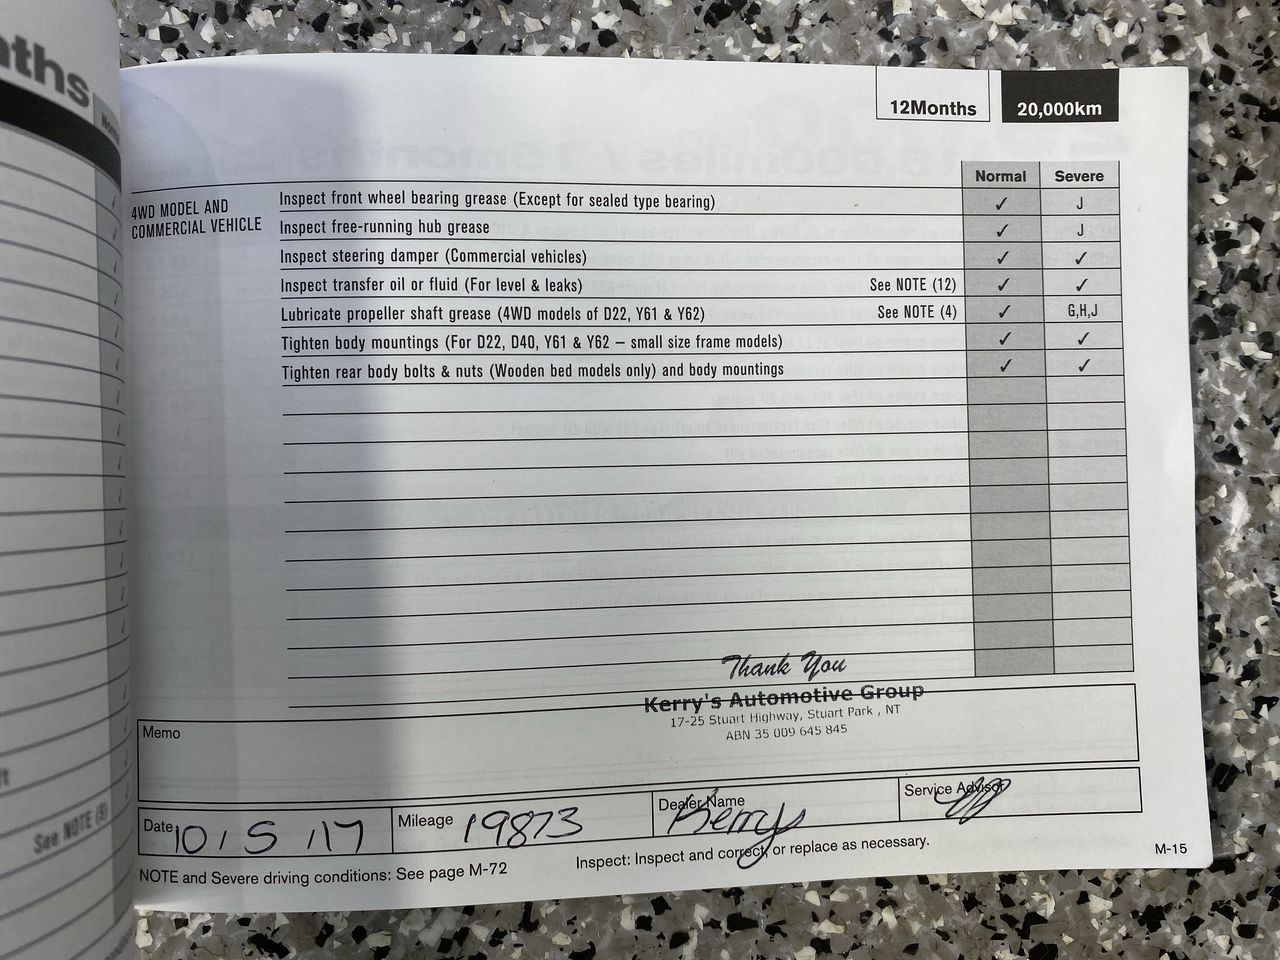 nths
12Months 20,000km
Normal Severe
4WD MODEL AND
COMMERCIAL VEHICLE
Inspect front wheel bearing grease (Except for sealed type bearing) ✓ J
Inspect free-running hub grease ✓ J
Inspect steering damper (Commercial vehicles) ✓ ✓
Inspect transfer oil or fluid (For level & leaks) See NOTE (12) ✓ ✓
Lubricate propeller shaft grease (4WD models of D22, Y61 & Y62) See NOTE (4) ✓ G,H,J
Tighten body mountings (For D22, D40, Y61 & Y62 – small size frame models) ✓ ✓
Tighten rear body bolts & nuts (Wooden bed models only) and body mountings ✓ ✓
Thank You
Kerry's Automotive Group
17-25 Stuart Highway, Stuart Park , NT
ABN 35 009 645 845
Memo
Date 10 / 5 / 17 Mileage 19873 Dealer Name Kerrys Service Advisor
NOTE and Severe driving conditions: See page M-72 Inspect: Inspect and correct, or replace as necessary. M-15
See NOTE (9)